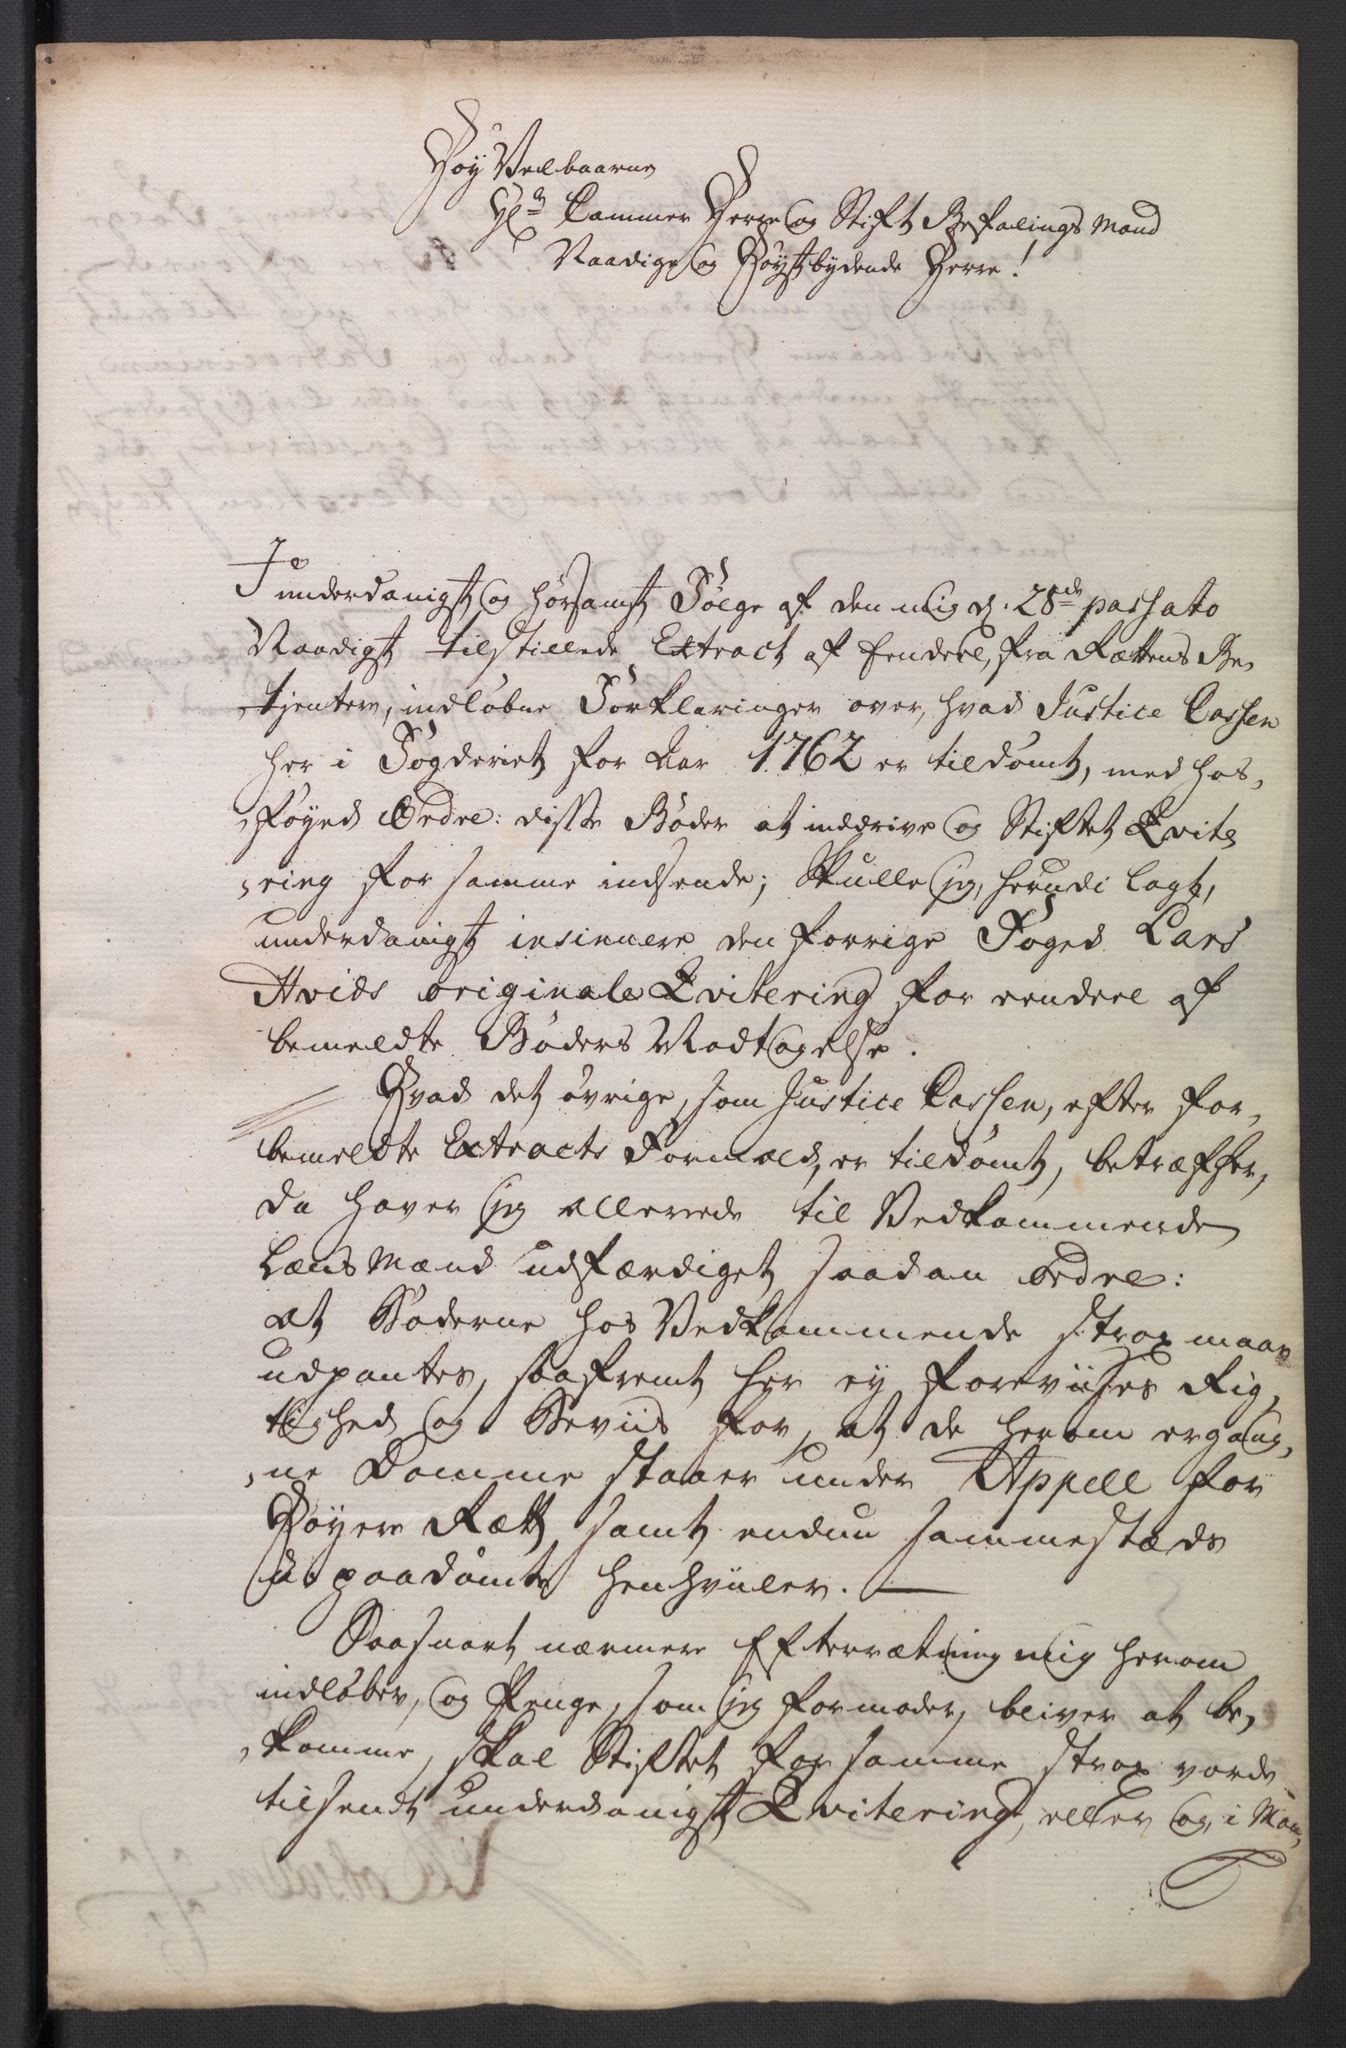 Høy Velbaarne
Hr Cammer Herre og Stift Befalings Mand
Naadige og Høystbydende Herre!
I underdanigst og hørsamst Følge af den mig d. 28de passato
Naadigst tilstillede Extract af endeel, fra Rættens Be,
,tjentere, indløbne Forklaringer over, hvad Justice Cassen
her i Fogderiet for Aar 1762 er tildømt, med hos,
,føyed Ordre: disse Bøder at inddrive og Stiftet Qvite
,ring for samme indsende; Skulle jeg, herudi lagt,
underdanigst insinuere den forrige Foged Lars
Hvids originale Qvitering for eendeel af
bemeldte Bøders Modtagelse.
Hvad det øvrige, som Justice Cassen, efter for,
bemeldte Extracts Formæld, er tildømt, betræffer,
da haver jeg allerede til Vedkommende
Lænsmænd udfærdiget saadan Ordre:
at Bøderne hos Vedkommende strax maae
udpantes, saafremt her ey foreviises Rig,
tighed og Beviis for, at de herom ergang,
,ne Domme staaer under Appell for
Høyere Rætt samt endnu sammestæds
u-paadømte henhviler.
Saasnart nærmere Efterrætning mig herom
indløber, og Penge, som jeg formoder, bliver at be,
,komme, skal Stiftet for samme strax vorde
tilsendt underdanigst Qvitering, eller og, i Man,